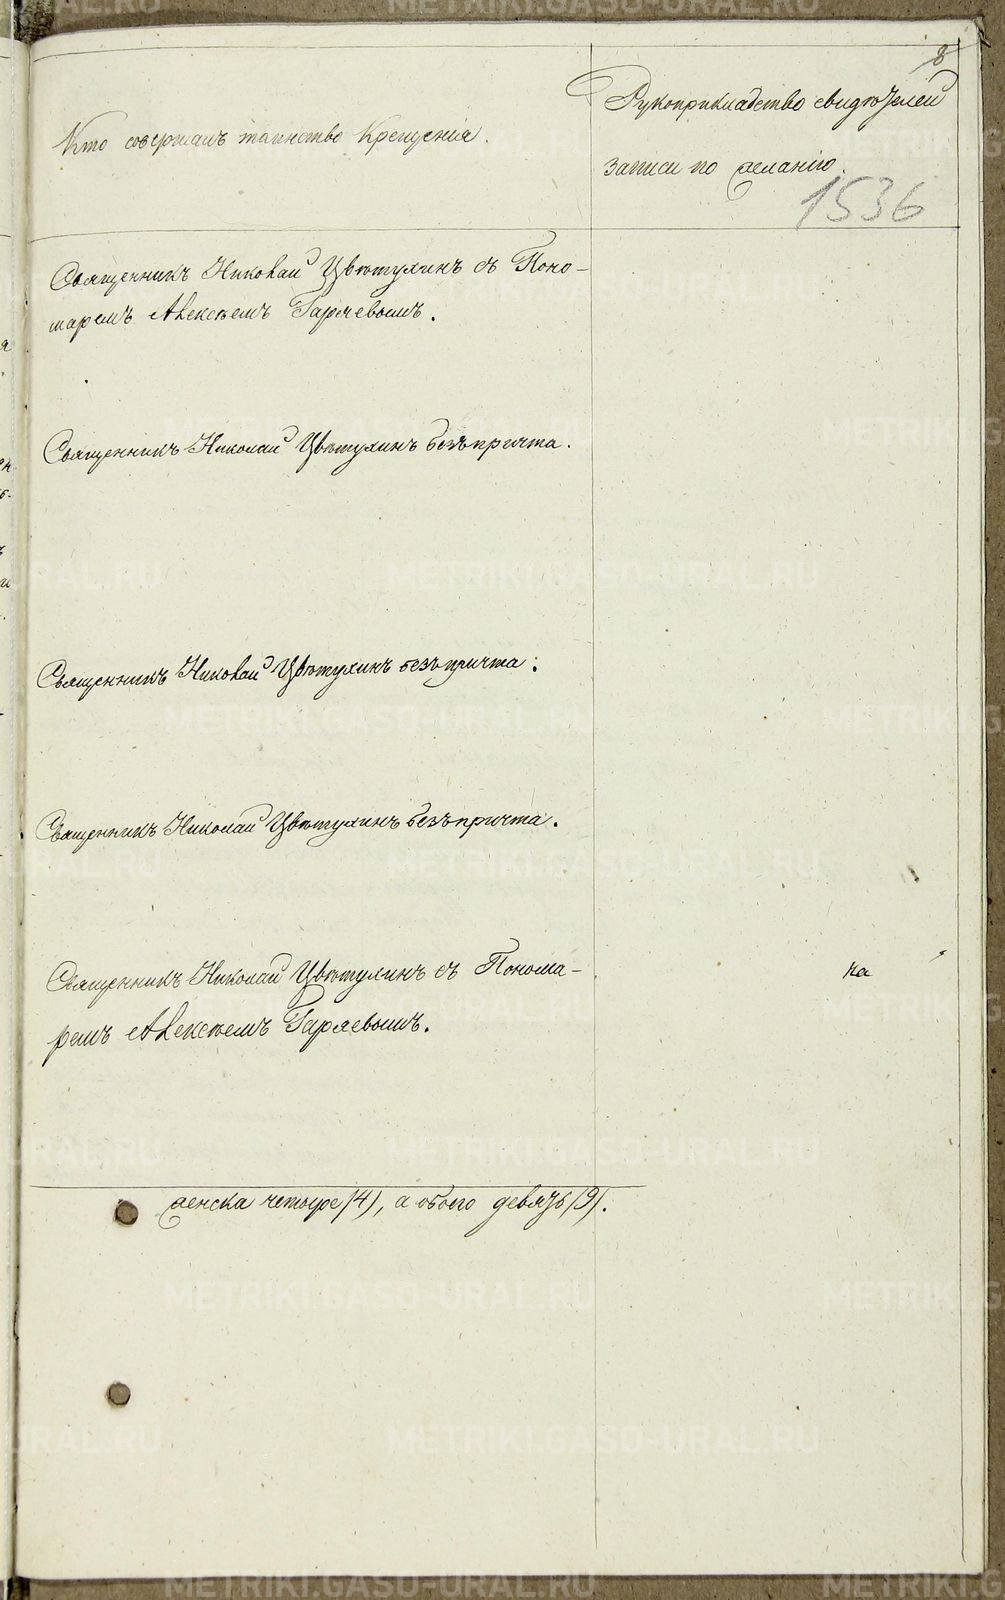 8
Кто совершалъ таинство Крещенія.
Рукоприкладство свидѣтелей
записи по желанію.
1536
Священникъ Николай Цвѣтухинъ съ Поно-
маремъ Алексѣемъ Гаряевымъ.
Священникъ Николай Цвѣтухинъ безъ причта.
Священникъ Николай Цвѣтухинъ безъ причта.
Священникъ Николай Цвѣтухинъ безъ причта.
Священникъ Николай Цвѣтухинъ съ Понома-
ремъ Алексѣемъ Гаряевымъ.
женска четыре /4/, а обоего девять /9/.
METRIKI.GASO-URAL.RU